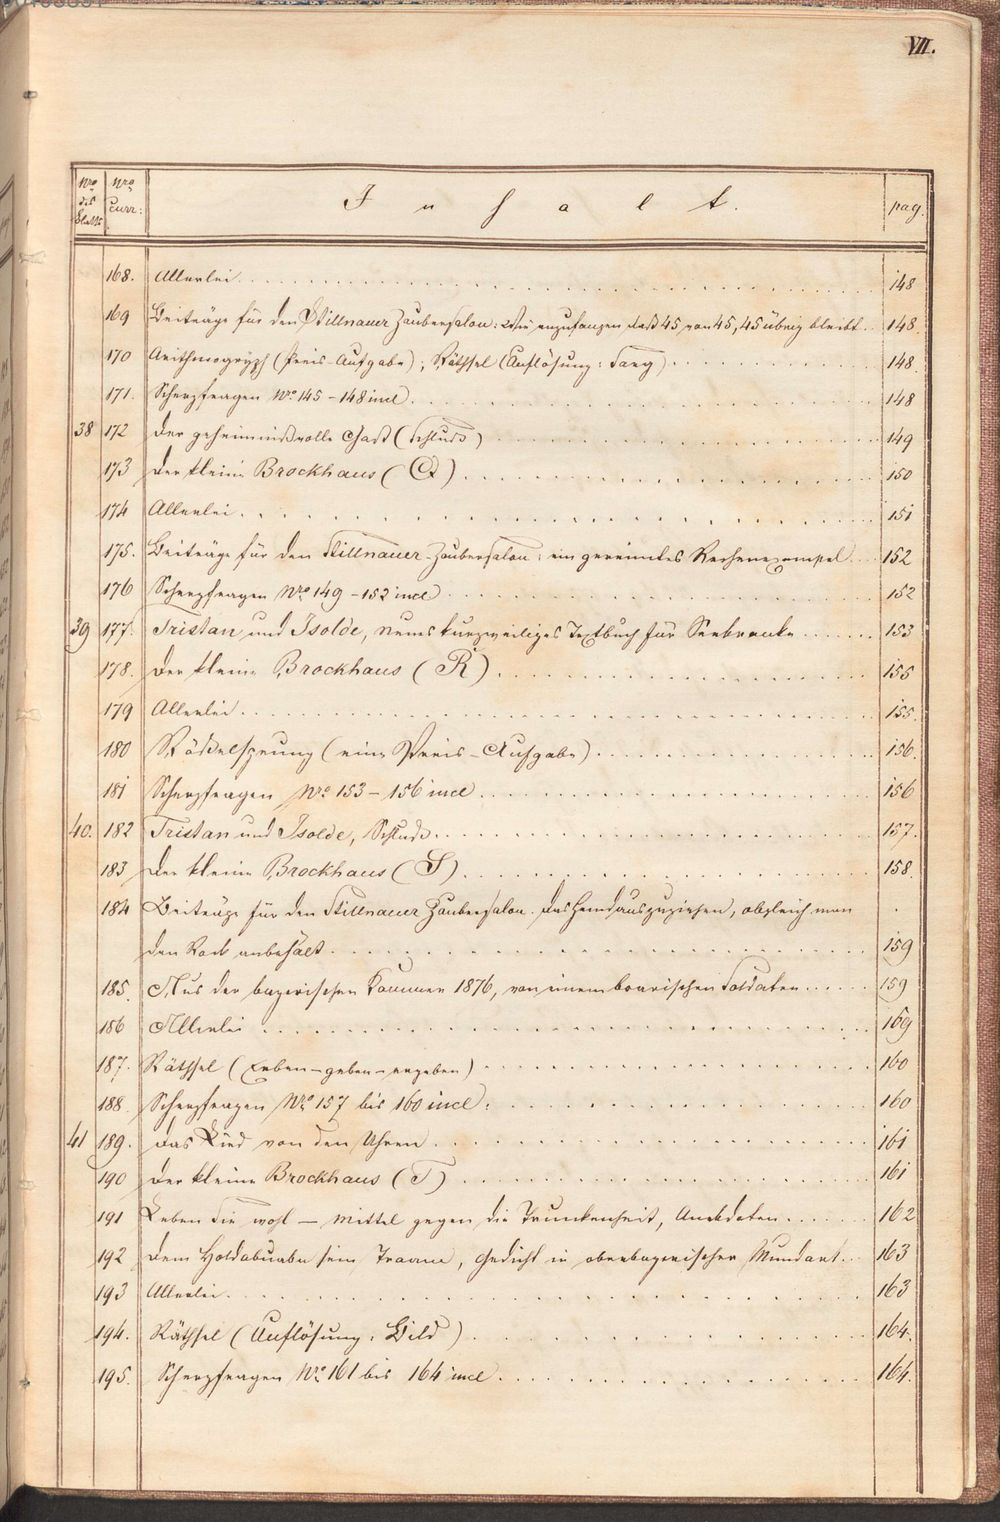 VII.
Nro des Blatts Nro Curr: Inhalt. pag.
168. Allerlei 148
169 Beiträge für den Stillnauer Zaubersalon: Wie anzufangen daß 45 von 45, 45 übrig bleibt 148
170 Arithmogryph (Preis-Aufgabe); Räthsel (Auflösung: Sarg) 148
171. Scherzfragen Nro 145 - 148 incl 148
38 172 Der geheimnißvolle Chaß (Schluß) 149
173 Der kleine Brockhaus (Q) 150
174 Allerlei 151
175. Beiträge für den Stillnauer Zaubersalon: ein gereimtes Rechenexempel 152
176 Scherzfragen Nro 149 - 152 incl 152
39 177. Tristan und Isolde, neues kurzweiliges Textbuch für Seekranke 153
178. Der kleine Brockhaus (R) 155
179 Allerlei 155.
180 Rößelsprung (eine Preis-Aufgabe) 156.
181 Scherzfragen Nro 153 - 156 incl 156
40. 182 Tristan und Isolde, Schluß 157.
183 Der kleine Brockhaus (S) 158.
184 Beiträge für den Stillnauer Zaubersalon. Das Hemd auszuziehen, obgleich man
den Rock anbehält 159
185. Aus der bayerischen Kammer 1876, von einem boarischen Soldaten 159
186 Allerlei 169
187. Räthsel (Erben - geben - ergeben) 160
188. Scherzfragen Nro 157 bis 160 incl: 160
41 189. Das Lied von den Uhren 161
190 Der kleine Brockhaus (T) 161
191 Leben Sie wohl — Mittel gegen die Trunkenheit, Anekdoten 162
192 Dem Holdabuabn sein Traam, Gedicht in oberbayerischer Mundart 163
193 Allerlei 163
194. Räthsel (Auflösung: Bild) 164.
195. Scherzfragen Nro 161 bis 164 incl 164.